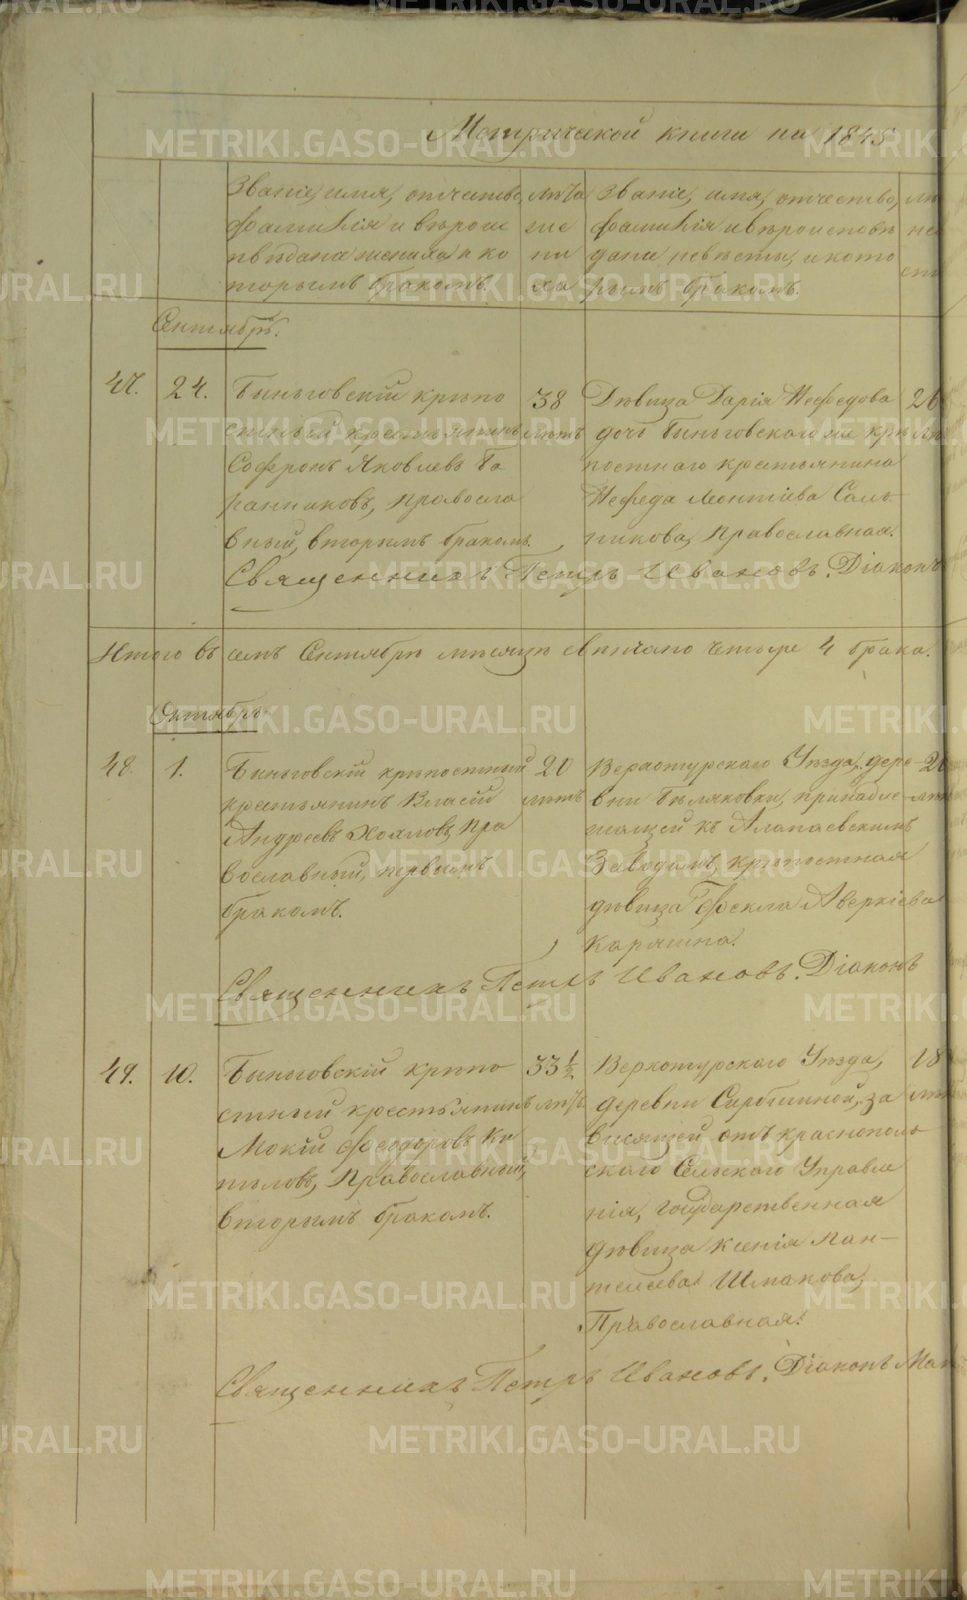 Метрической книги на 1845
Званіе, имя, отчество,
фамилія и вѣроис
повѣданіе жениха и ко
торымъ бракомъ.
лѣта
же
ни
ха
Званіе, имя, отчество,
фамилія и вѣроисповѣ
даніе невѣсты, и кото
рымъ бракомъ.
лѣ
не
Сентябрь.
47. 24.
Быньговскій крѣпо
стный крестьянинъ
Софронъ Яковлевъ Ба
ранниковъ, православ
вный, вторымъ бракомъ.
38
лѣтъ
Дѣвица Дарія Нефедова
дочь Быньговскаго же крѣ
постнаго крестьянина
Нефеда Леонтіева Саль
никова, Православная.
26
лѣ
Священникъ Петръ Ивановъ. Діаконъ
Итого въ семъ Сентябрѣ мѣсяцѣ вѣнчано четыре 4 брака.
Октябрь
48. 1.
Быньговскій крѣпостный
крестьянинъ Власій
Андреевъ Хохловъ, Пра
вославный, первымъ
бракомъ.
20
лѣтъ
Верхотурскаго Уѣзда, дере-
вни Бѣляковки, принадле-
жащей къ Алапаевскимъ
Заводамъ, крѣпостная
дѣвица Ѳекла Аверкіева
Карягина.
20
лѣтъ
Священникъ Петръ Ивановъ. Діаконъ
49. 10.
Быньговскій крѣпо
стный крестьянинъ
Мокій Ѳеодоровъ Ко
пыловъ, Православный,
вторымъ бракомъ.
33½
лѣтъ
Верхотурскаго Уѣзда,
деревни за
висящей отъ Краснополь
скаго Сельскаго Управле
нія, государственная
дѣвица Ксенія Пан-
телеева Шмакова,
Православная.
18
лѣтъ
Священникъ Петръ Ивановъ. Діаконъ
METRIKI.GASO-URAL.RU